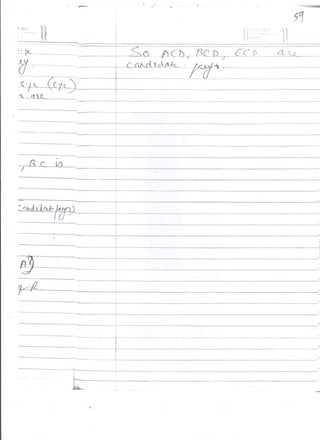 59
So ACD, BCD, ECD are
candidate keys.
, BC is
candidate keys)
A}
of R